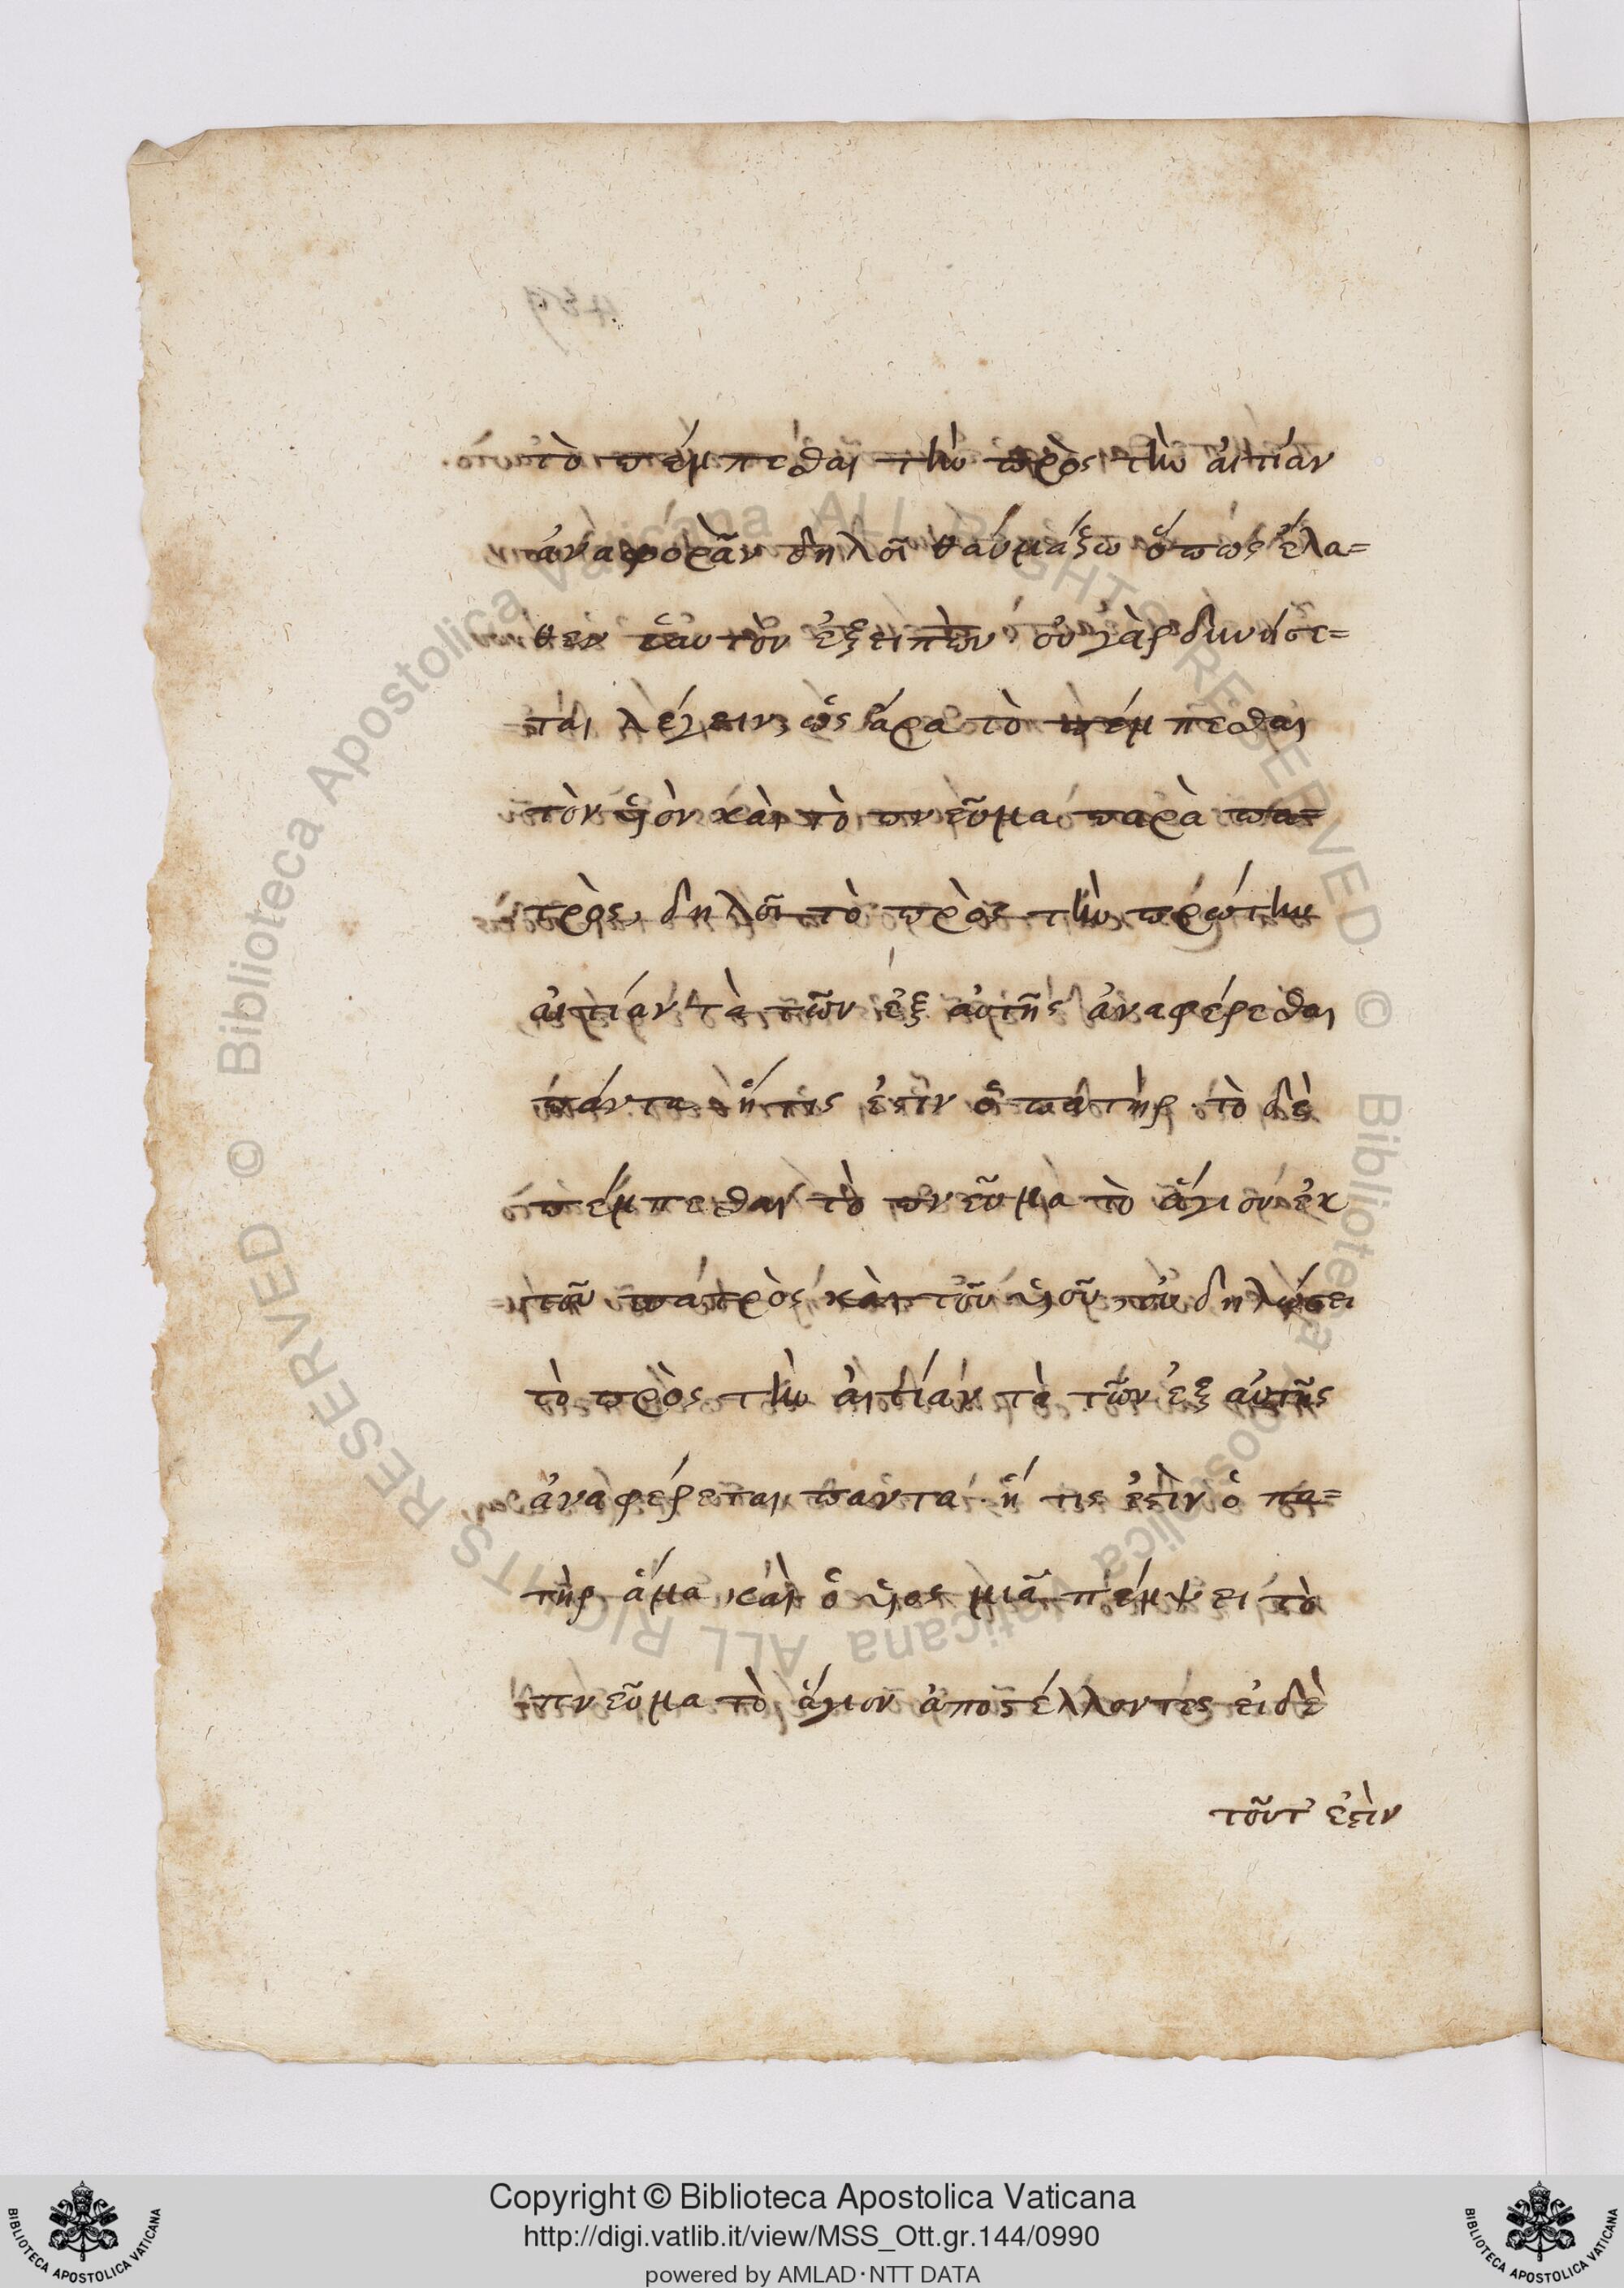 τὸ πέμπεσθαι τὴν πρὸς τὴν αἰτίαν
ἀναφορὰν δηλοῖ θαυμάζω ὅπως ἔλα=
θεν ἑαυτὸν ἐξειπών· οὐ γὰρ δυνήσε=
ται λέγειν, ὡς ἄρα τὸ πέμπεσθαι
τὸν υἱὸν καὶ τὸ πνεῦμα παρὰ πα=
τρὸς, δηλοῖ τὸ πρὸς τὴν πρώτην
αἰτίαν τὰ τῶν ἐξ αὐτῆς ἀναφέρεσθαι
πάντα ἥτις ἐστὶν ὁ πατήρ· τὸ δὲ
πέμπεσθαι τὸ πνεῦμα τὸ ἅγιον ἐκ
τοῦ πατρὸς καὶ τοῦ υἱοῦ, οὐ δηλώσει
τὸ πρὸς τὴν αἰτίαν τὰ τῶν ἐξ αὐτῆς
ἀναφέρεται πάντα· ἥτις ἐστὶν ὁ πα=
τὴρ ἅμα καὶ ὁ υἱος μιᾶ πέμψει τὸ
πνεῦμα τὸ ἅγιον ἀποστέλλοντες εἰ δὲ
τοῦτ' ἐστὶν
Copyright © Biblioteca Apostolica Vaticana
http://digi.vatlib.it/view/MSS_Ott.gr.144/0990
powered by AMLAD·NTT DATA